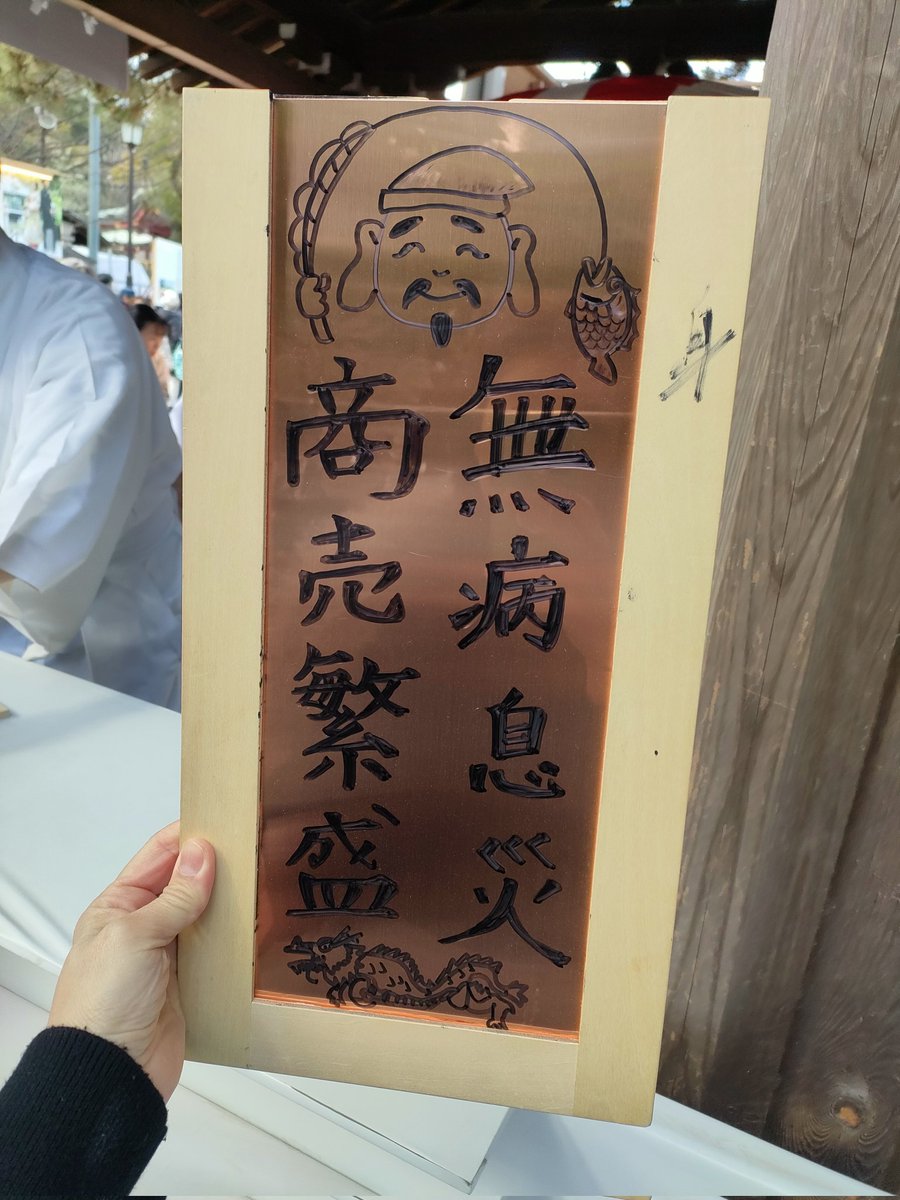 無病息災
商売繁盛